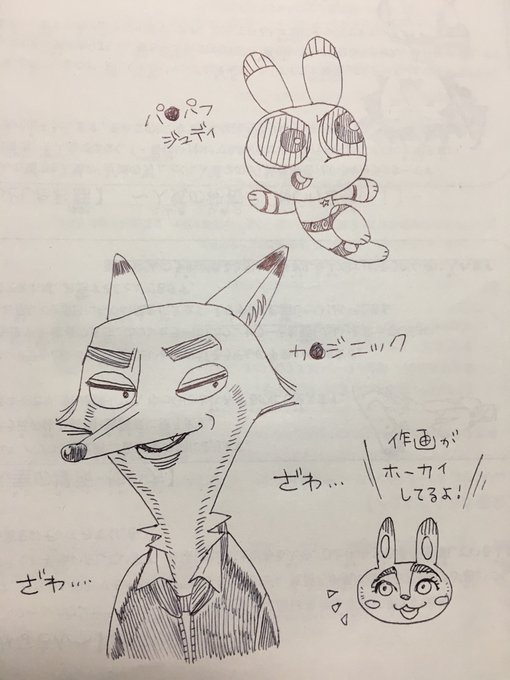 パ●パフ
ジュディ
カ●ジニック
ざわ…
作画が
ホーカイ
してるよ!
ざわ…